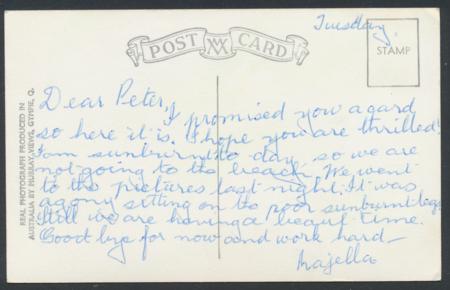 Tuesday.
POST CARD
STAMP
Dear Peter,
I promised you a card
so here it is. I hope you are thrilled!
I am sunburnt to day, so we are
not going to the beach. We went
to the pictures last night. It was
agony sitting on the poor sunburnt legs
Still we are having a beaut time.
Good bye for now and work hard—
Majella
REAL PHOTOGRAPH PRODUCED IN
AUSTRALIA BY MURRAY VIEWS, GYMPIE, Q.